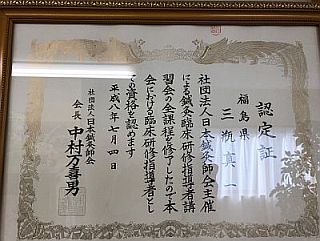 認定証
福島県
三瓶真一
社団法人日本鍼灸師会主催
による鍼灸臨床研修指導者講
習会の全課程を修了したので本
会における臨床研修指導者とし
ての資格を認めます
平成八年七月四日
社団法人日本鍼灸師会
会長 中村万喜男